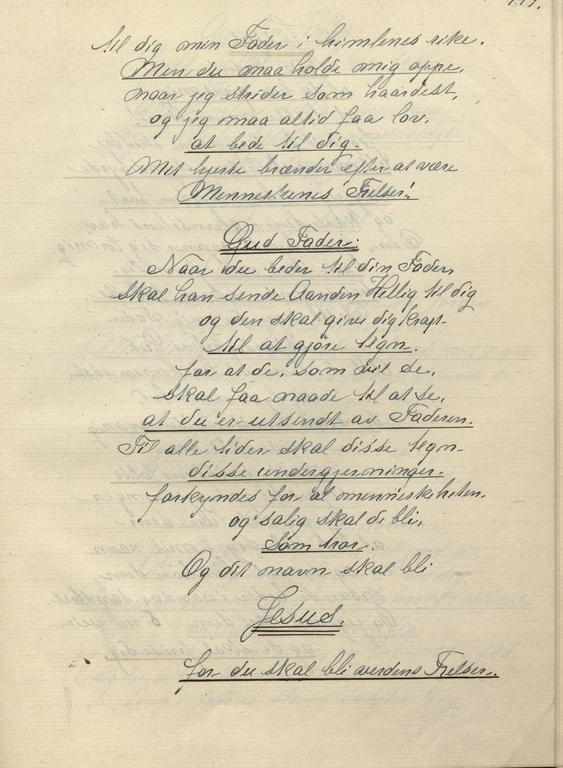 til dig min Fader i himlenes rike.
Men du maa holde mig oppe,
naar jeg strider som haardest,
og jeg maa altid faa lov,
at bede til dig.
Mit hjerte brænder efter at være
Menneskenes Frelser!
Gud Fader:
Naar du beder til din Fader,
skal han sende Aanden Hellig til dig
og den skal give dig kraft
til at gjöre tegn.
for at de, som vil se,
skal faa naade til at se,
at du er utsendt av Faderen.
Til alle tider skal disse tegn
disse undergjerninger.
forkyndes for al menneskheten.
og salig skal de bli,
som tror.
Og dit navn skal bli
Jesus.
for du skal bli verdens Frelser.